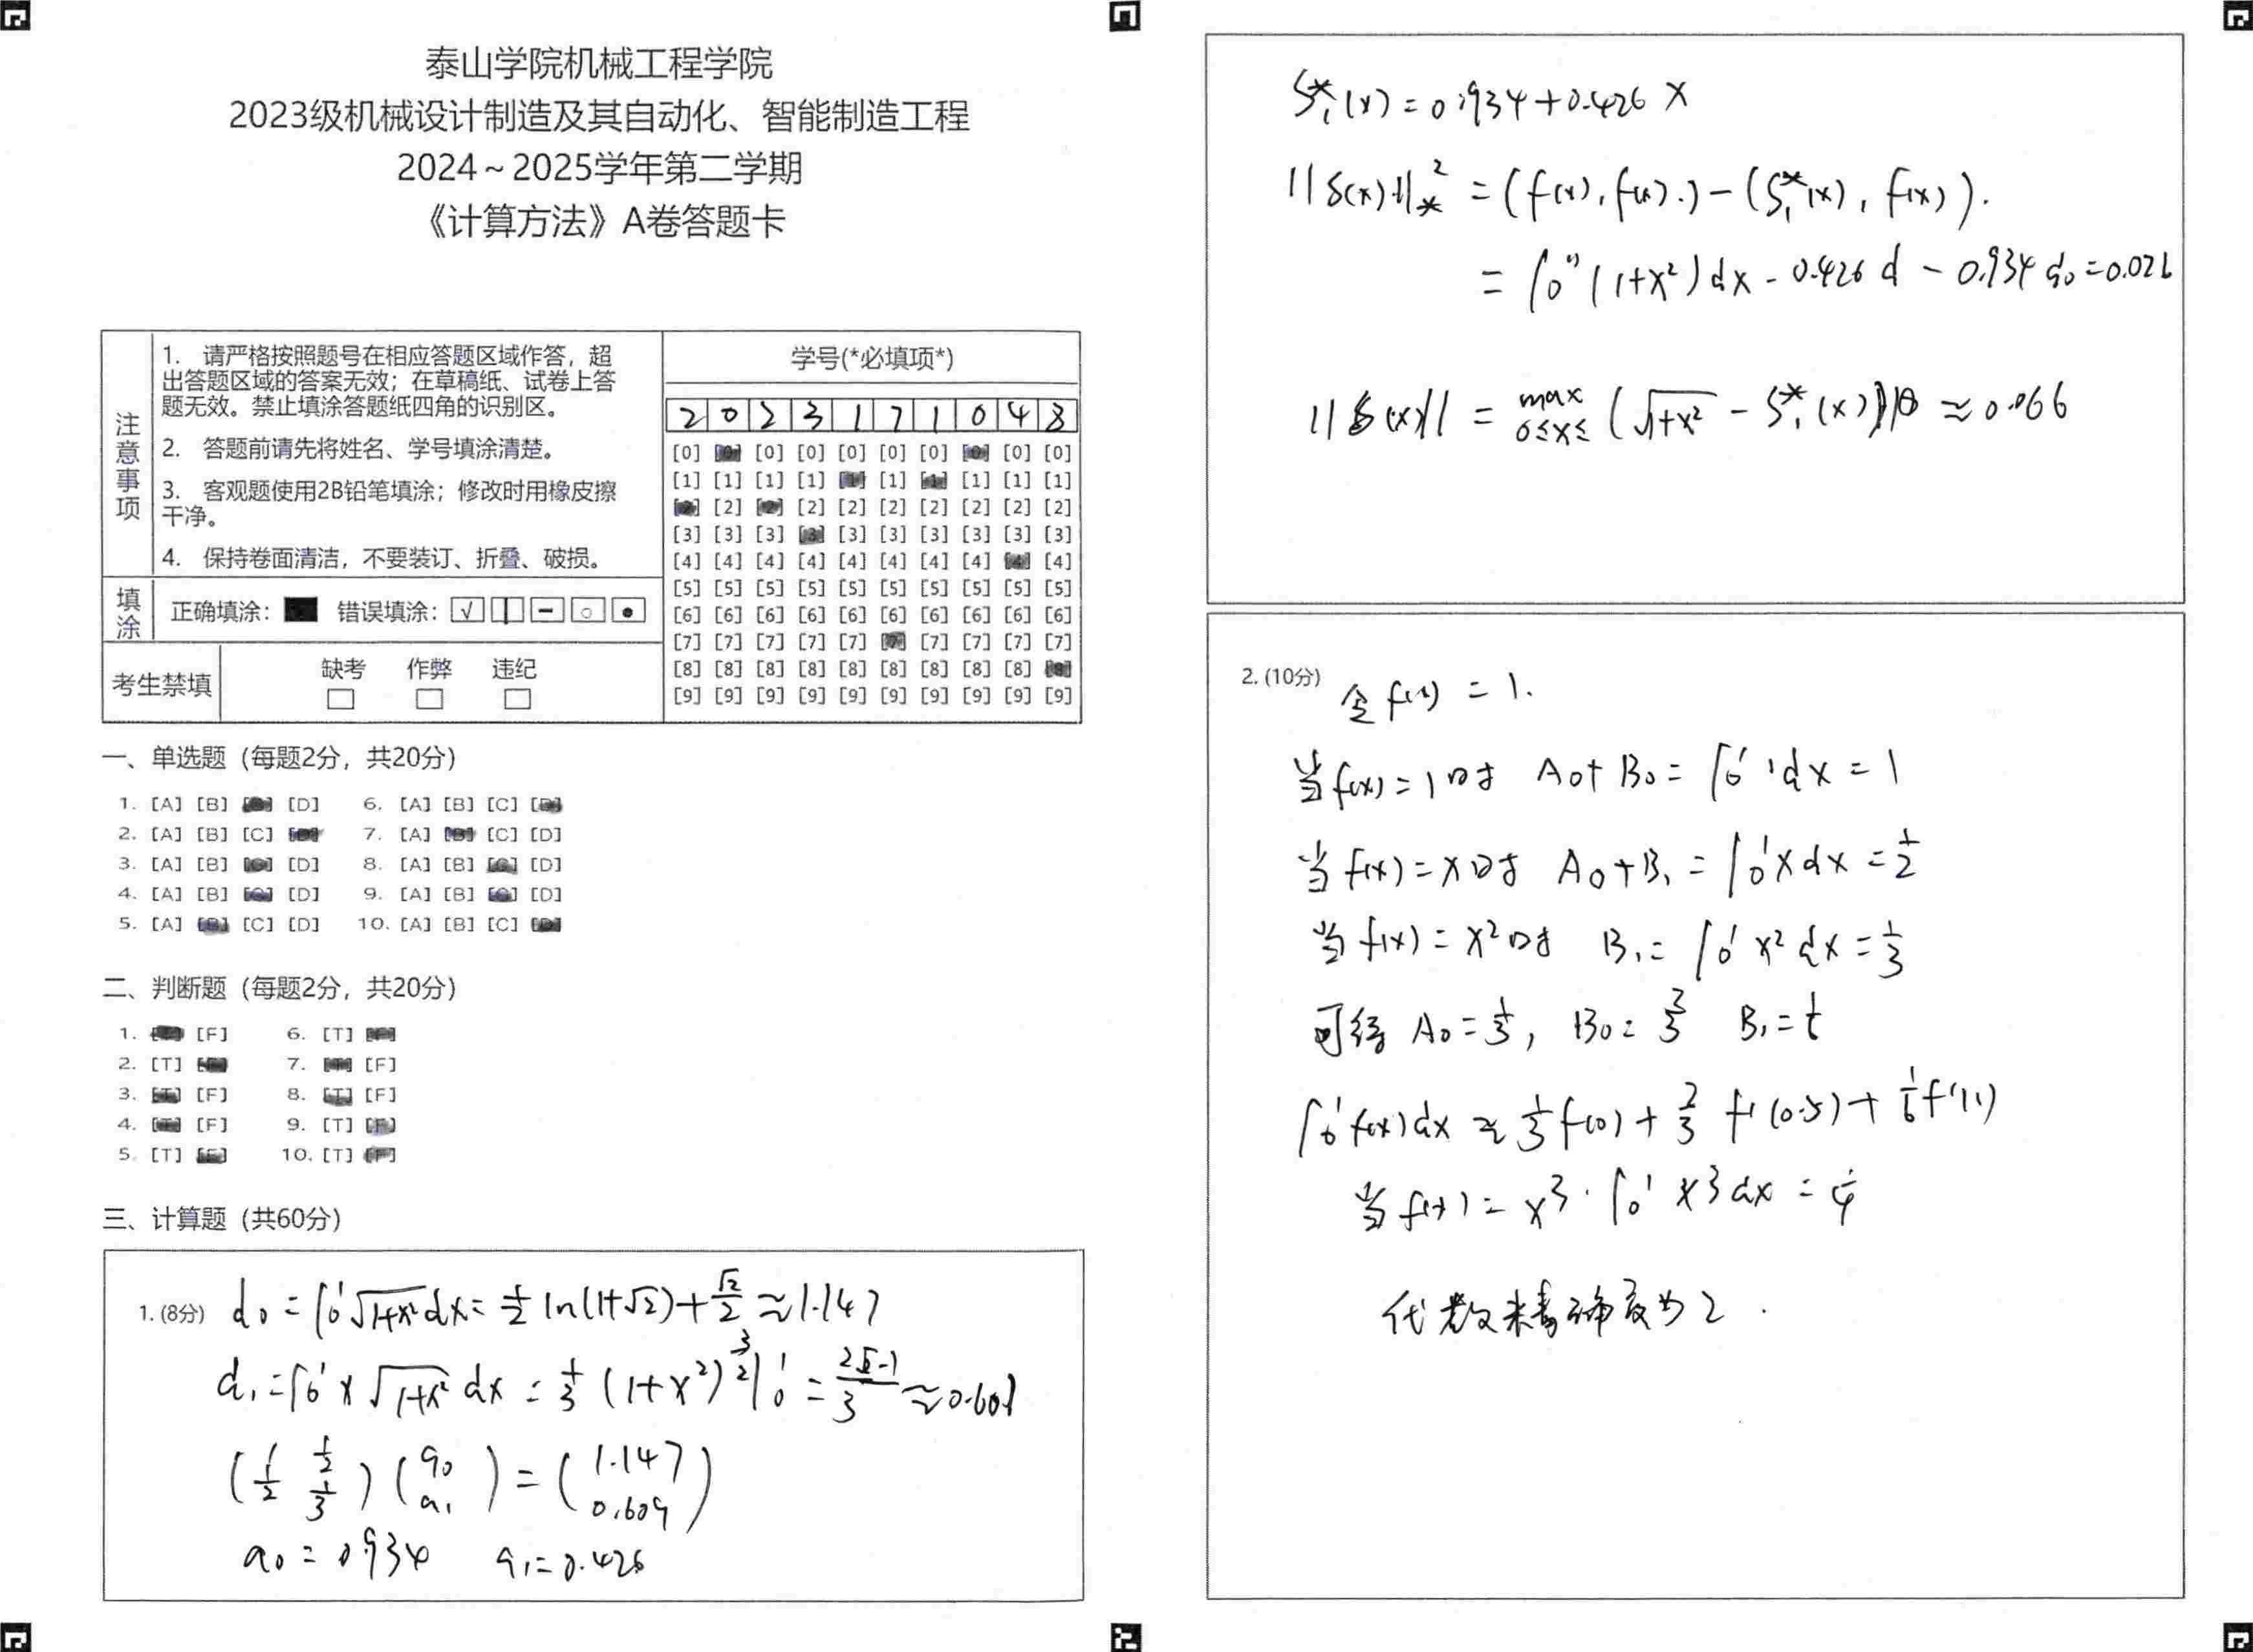 泰山学院机械工程学院
2023级机械设计制造及其自动化、智能制造工程
2024~2025学年第二学期
《计算方法》A卷答题卡
注意事项
1. 请严格按照题号在相应答题区域作答，超
出答题区域的答案无效；在草稿纸、试卷上答
题无效。禁止填涂答题纸四角的识别区。
2. 答题前请先将姓名、学号填涂清楚。
3. 客观题使用2B铅笔填涂；修改时用橡皮擦
干净。
4. 保持卷面清洁，不要装订、折叠、破损。
填涂
正确填涂： 错误填涂：
考生禁填
缺考 作弊 违纪
学号(*必填项*)
2 0 2 3 1 7 1 0 4 8
[0] [0] [0] [0] [0] [0] [0] [0] [0] [0]
[1] [1] [1] [1] [1] [1] [1] [1] [1] [1]
[2] [2] [2] [2] [2] [2] [2] [2] [2] [2]
[3] [3] [3] [3] [3] [3] [3] [3] [3] [3]
[4] [4] [4] [4] [4] [4] [4] [4] [4] [4]
[5] [5] [5] [5] [5] [5] [5] [5] [5] [5]
[6] [6] [6] [6] [6] [6] [6] [6] [6] [6]
[7] [7] [7] [7] [7] [7] [7] [7] [7] [7]
[8] [8] [8] [8] [8] [8] [8] [8] [8] [8]
[9] [9] [9] [9] [9] [9] [9] [9] [9] [9]
一、单选题（每题2分，共20分）
1. [A] [B] [C] [D] 6. [A] [B] [C] [D]
2. [A] [B] [C] [D] 7. [A] [B] [C] [D]
3. [A] [B] [C] [D] 8. [A] [B] [C] [D]
4. [A] [B] [C] [D] 9. [A] [B] [C] [D]
5. [A] [B] [C] [D] 10. [A] [B] [C] [D]
二、判断题（每题2分，共20分）
1. [T] [F] 6. [T] [F]
2. [T] [F] 7. [T] [F]
3. [T] [F] 8. [T] [F]
4. [T] [F] 9. [T] [F]
5. [T] [F] 10. [T] [F]
三、计算题（共60分）
1. (8分) d₀ = ∫₀¹ √(1+x²) dx = 1/2 ln(1+√2) + √2/2 ≈ 1.147
d₁ = ∫₀¹ x √(1+x²) dx = 1/3 (1+x²)^(3/2) |₀¹ = (2√2-1)/3 ≈ 0.609
(1 1/2; 1/2 1/3) (a₀; a₁) = (1.147; 0.609)
a₀ = 0.934 a₁ = 0.426
S₁*(x) = 0.934 + 0.426 x
||δ(x)||₂² = (f(x), f(x)) - (S₁*(x), f(x)).
= ∫₀¹ (1+x²) dx - 0.426 d - 0.934 d₀ = 0.026
||δ(x)|| = max 0≤x≤ (√(1+x²) - S₁*(x)) ≈ 0.066
2. (10分) 令 f(x) = 1.
当 f(x) = 1 时 A₀ + B₀ = ∫₀¹ 1 dx = 1
当 f(x) = x 时 A₀ + B₁ = ∫₀¹ x dx = 1/2
当 f(x) = x² 时 B₁ = ∫₀¹ x² dx = 1/3
可得 A₀ = 1/3, B₀ = 2/3 B₁ = 1/6
∫₀¹ f(x) dx ≈ 1/3 f(0) + 2/3 f'(0.5) + 1/6 f'(1)
当 f(x) = x³ . ∫₀¹ x³ dx = 1/4
代数精确度为 2 .